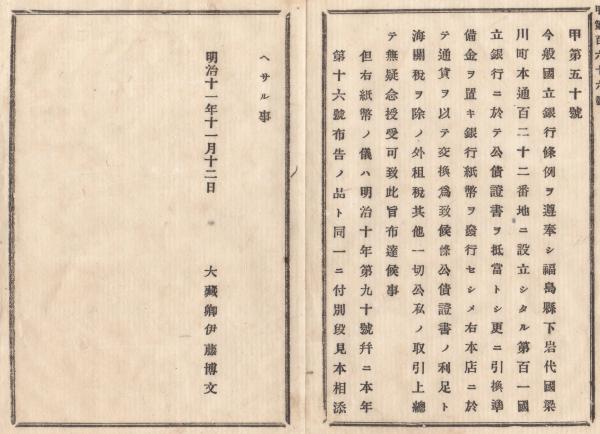 甲第五十號
今般國立銀行條例ヲ遵奉シ福島縣下岩代國梁
川町本通百二十二番地ニ設立シタル第百一國
立銀行ニ於テ公債證書ヲ抵當トシ更ニ引換準
備金ヲ置キ銀行紙幣ヲ發行セシメ右本店ニ於
テ通貨ヲ以テ交換爲致候條公債證書ノ利足ト
海關稅ヲ除ノ外租稅其他一切公私ノ取引上總
テ無疑念授受可致此旨布達候事
但右紙幣ノ儀ハ明治十年第九十號幷ニ本年
第十六號布告ノ品ト同一ニ付別段見本相添
ヘサル事
明治十一年十一月十二日
大藏卿伊藤博文